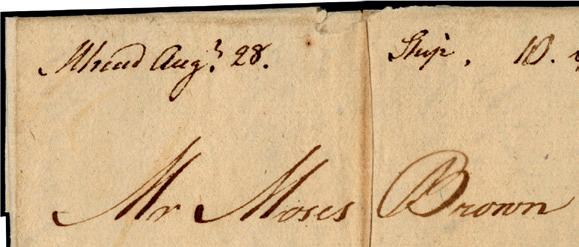 Mhead Augt. 28. Ship. 10.
Mr Moses Brown